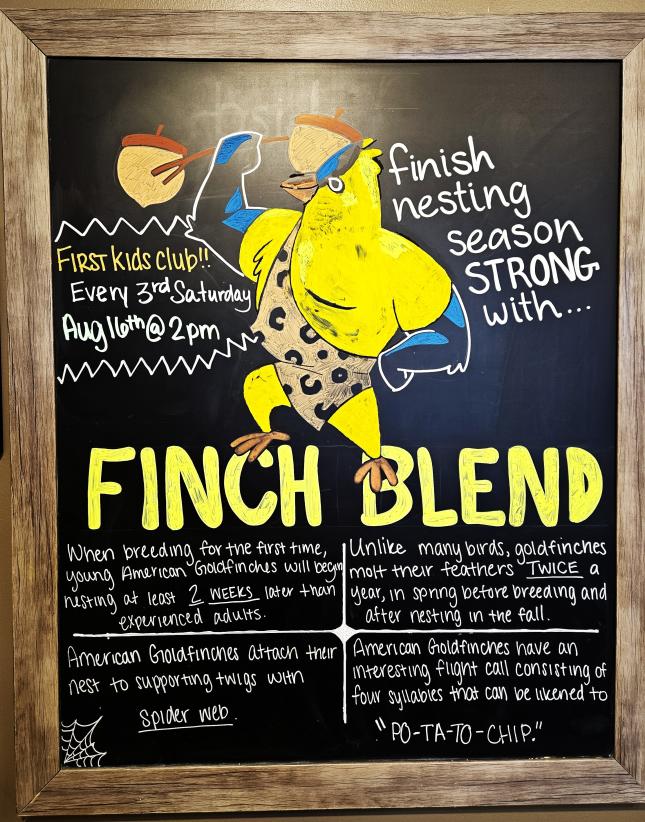 finish
nesting
season
STRONG
with...
FIRST kids club!!
Every 3rd Saturday
Aug 16th @ 2pm
FINCH BLEND
When breeding for the first time,
young American Goldfinches will begin
nesting at least 2 WEEKS later than
experienced adults.
Unlike many birds, goldfinches
molt their feathers TWICE a
year, in spring before breeding and
after nesting in the fall.
American Goldfinches attach their
nest to supporting twigs with
spider web.
American Goldfinches have an
interesting flight call consisting of
four syllables that can be likened to
"PO-TA-TO-CHIP."